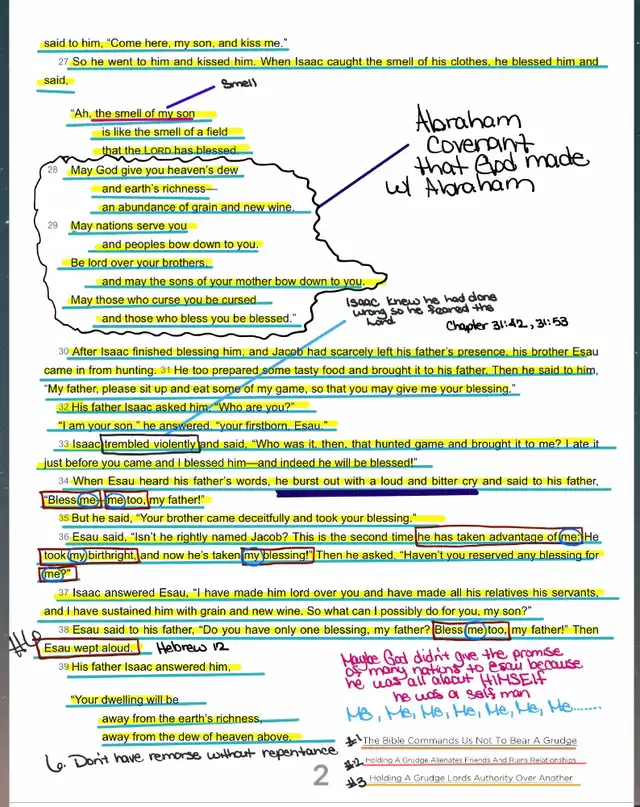 said to him, “Come here, my son, and kiss me.”
27 So he went to him and kissed him. When Isaac caught the smell of his clothes, he blessed him and
said,
Smell
“Ah, the smell of my son
is like the smell of a field
that the LORD has blessed.
Abraham
Covenant
that God made
w/ Abraham
28 May God give you heaven’s dew
and earth’s richness—
an abundance of grain and new wine.
29 May nations serve you
and peoples bow down to you.
Be lord over your brothers,
and may the sons of your mother bow down to you.
May those who curse you be cursed
and those who bless you be blessed.”
Isaac knew he had done
wrong so he feared the
Lord
Chapter 31:42, 31:53
30 After Isaac finished blessing him, and Jacob had scarcely left his father’s presence, his brother Esau
came in from hunting. 31 He too prepared some tasty food and brought it to his father. Then he said to him,
“My father, please sit up and eat some of my game, so that you may give me your blessing.”
32 His father Isaac asked him, “Who are you?”
“I am your son,” he answered, “your firstborn, Esau.”
33 Isaac trembled violently and said, “Who was it, then, that hunted game and brought it to me? I ate it
just before you came and I blessed him—and indeed he will be blessed!”
34 When Esau heard his father’s words, he burst out with a loud and bitter cry and said to his father,
“Bless me—me too, my father!”
35 But he said, “Your brother came deceitfully and took your blessing.”
36 Esau said, “Isn’t he rightly named Jacob? This is the second time he has taken advantage of me: He
took my birthright, and now he’s taken my blessing!” Then he asked, “Haven’t you reserved any blessing for
me?”
37 Isaac answered Esau, “I have made him lord over you and have made all his relatives his servants,
and I have sustained him with grain and new wine. So what can I possibly do for you, my son?”
38 Esau said to his father, “Do you have only one blessing, my father? Bless me too, my father!” Then
#6
Esau wept aloud.
Hebrew 12
39 His father Isaac answered him,
“Your dwelling will be
away from the earth’s richness,
away from the dew of heaven above.
Maybe God didn't give the promise
of many nations to Esau because
he was all about HIMSELF
he was a self man
Me, Me, Me, Me, Me, Me, Me.......
6. Don't have remorse without repentance
#1 The Bible Commands Us Not To Bear A Grudge
#2 Holding A Grudge Alienates Friends And Ruins Relationships
#3 Holding A Grudge Lords Authority Over Another
2